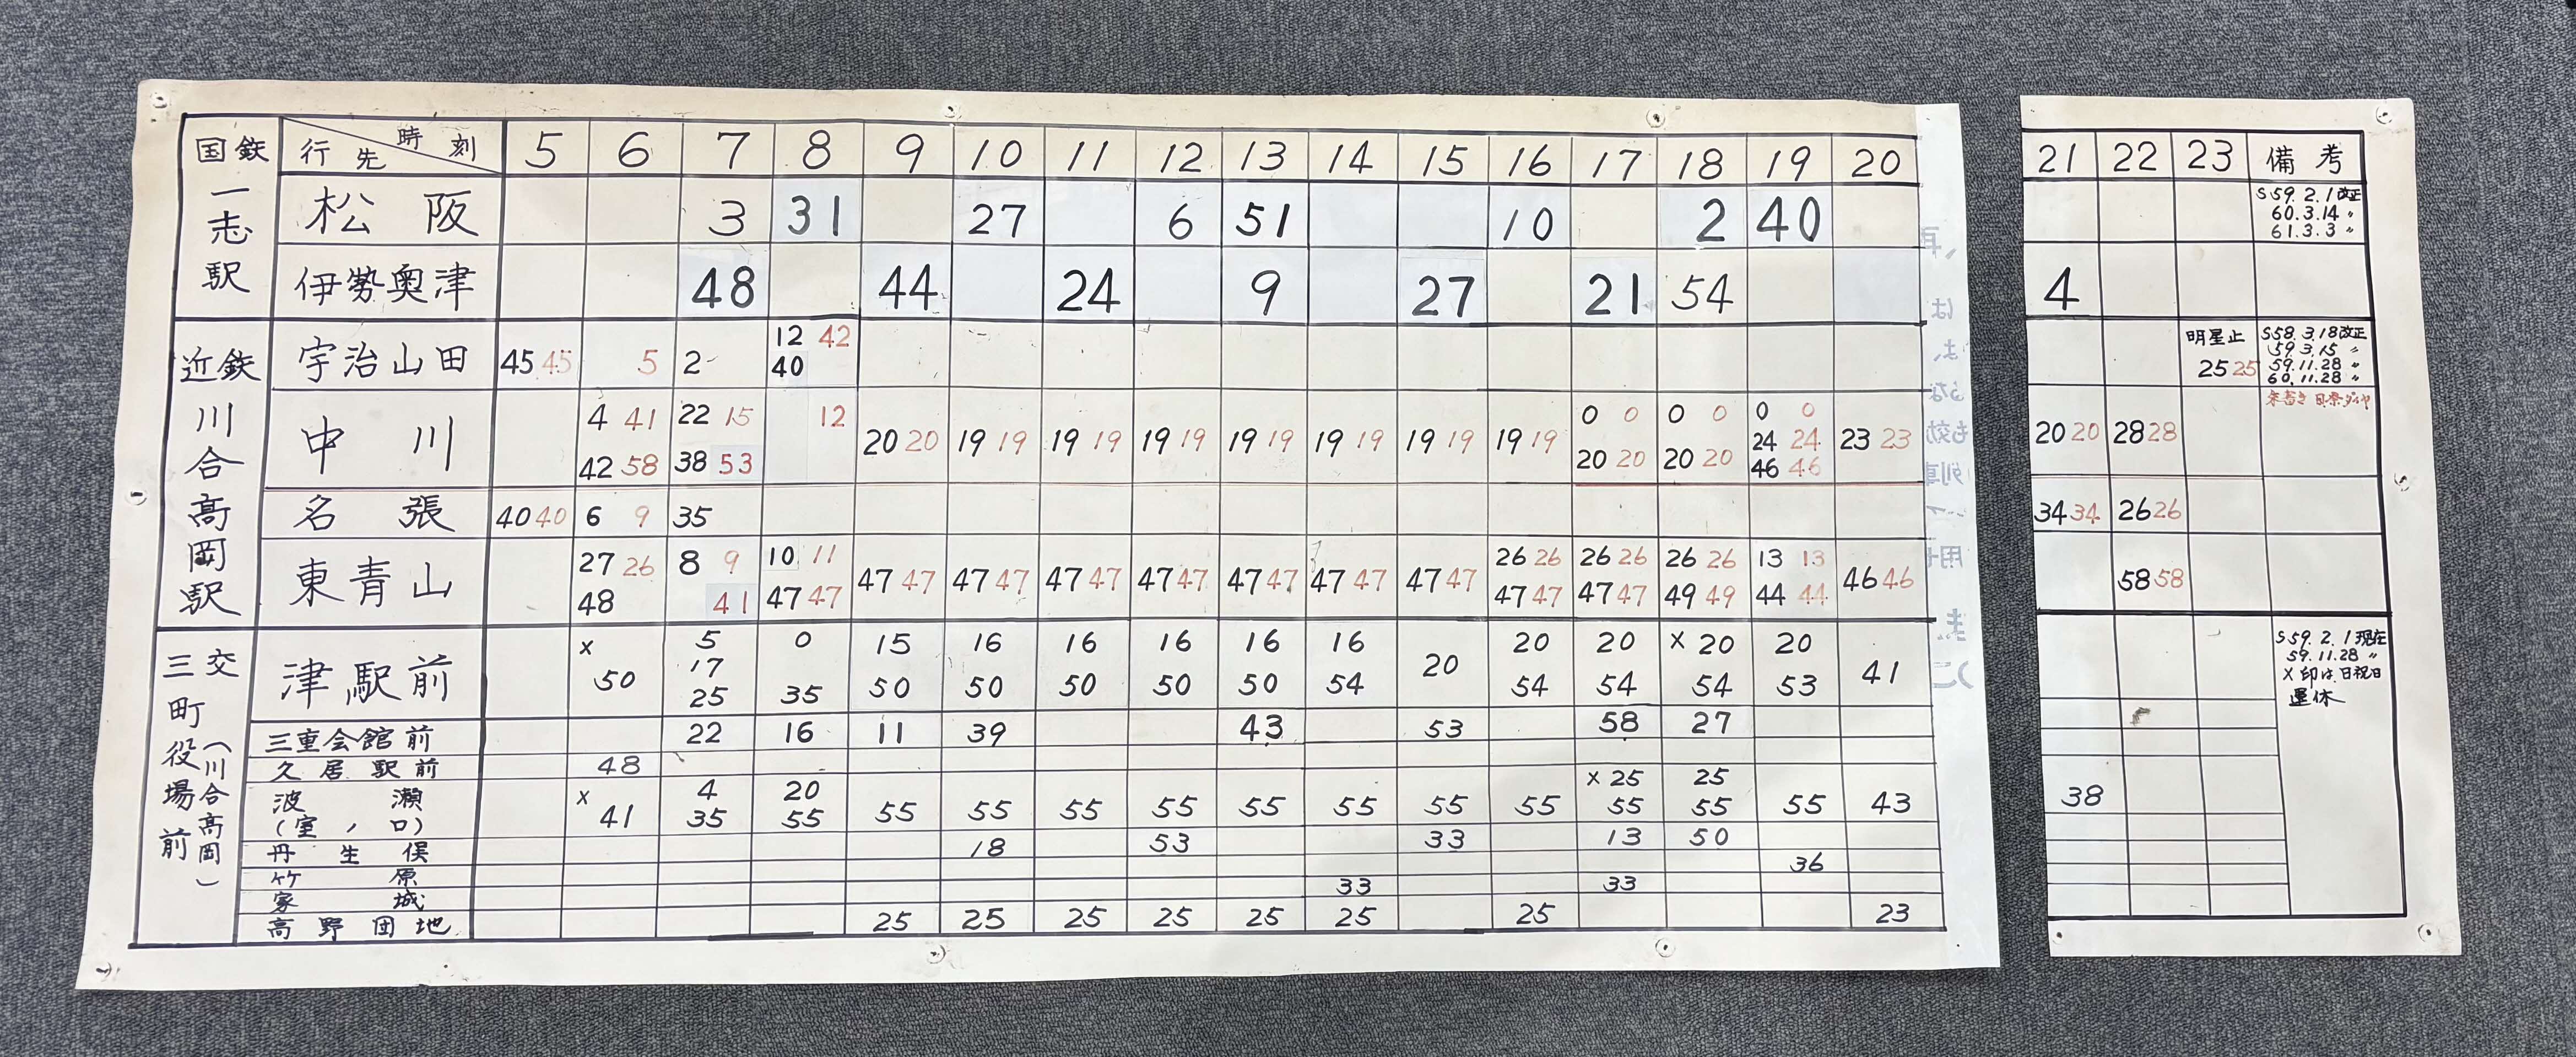 国鉄 一志駅
時刻 行先 5 6 7 8 9 10 11 12 13 14 15 16 17 18 19 20 21 22 23 備考
松阪 3 31 27 6 51 10 2 40
S59.2.1改正
60.3.14 〃
61.3.3 〃
伊勢奥津 48 44 24 9 27 21 54 4
近鉄 川合高岡駅
宇治山田 45 45 5 2 12 42
40
明星止
25 25
S58.3.18改正
59.3.15 〃
59.11.28 〃
60.11.28 〃
中川 4 41 22 15 12 20 20 19 19 19 19 19 19 19 19 19 19 19 19 19 19 0 0 0 0 0 0 23 23 20 20 28 28
24 24
42 58 38 53 20 20 20 20 46 46
名張 40 40 6 9 35 34 34 26 26
東青山 27 26 8 9 10 11 47 47 47 47 47 47 47 47 47 47 47 47 47 47 26 26 26 26 26 26 13 13 46 46 58 58
48 41 47 47 47 47 47 47 49 49 44 44
三交 町役場前(川合高岡)
津駅前 x 5 0 15 16 16 16 16 16 20 20 20 x 20 20 41
17
50 25 35 50 50 50 50 50 54 54 54 54 53
S59.2.1現在
59.11.28 〃
X印は日祝日
運休
三重会館前 22 16 11 39 43 53 58 27
久居駅前 48
波瀬 x 4 20 x 25 25
(室ノ口) 41 35 55 55 55 55 55 55 55 55 55 55 55 55 43 38
丹生俣 18 53 33 13 50
竹原 36
家城 33 33
高野団地 25 25 25 25 25 25 25 23